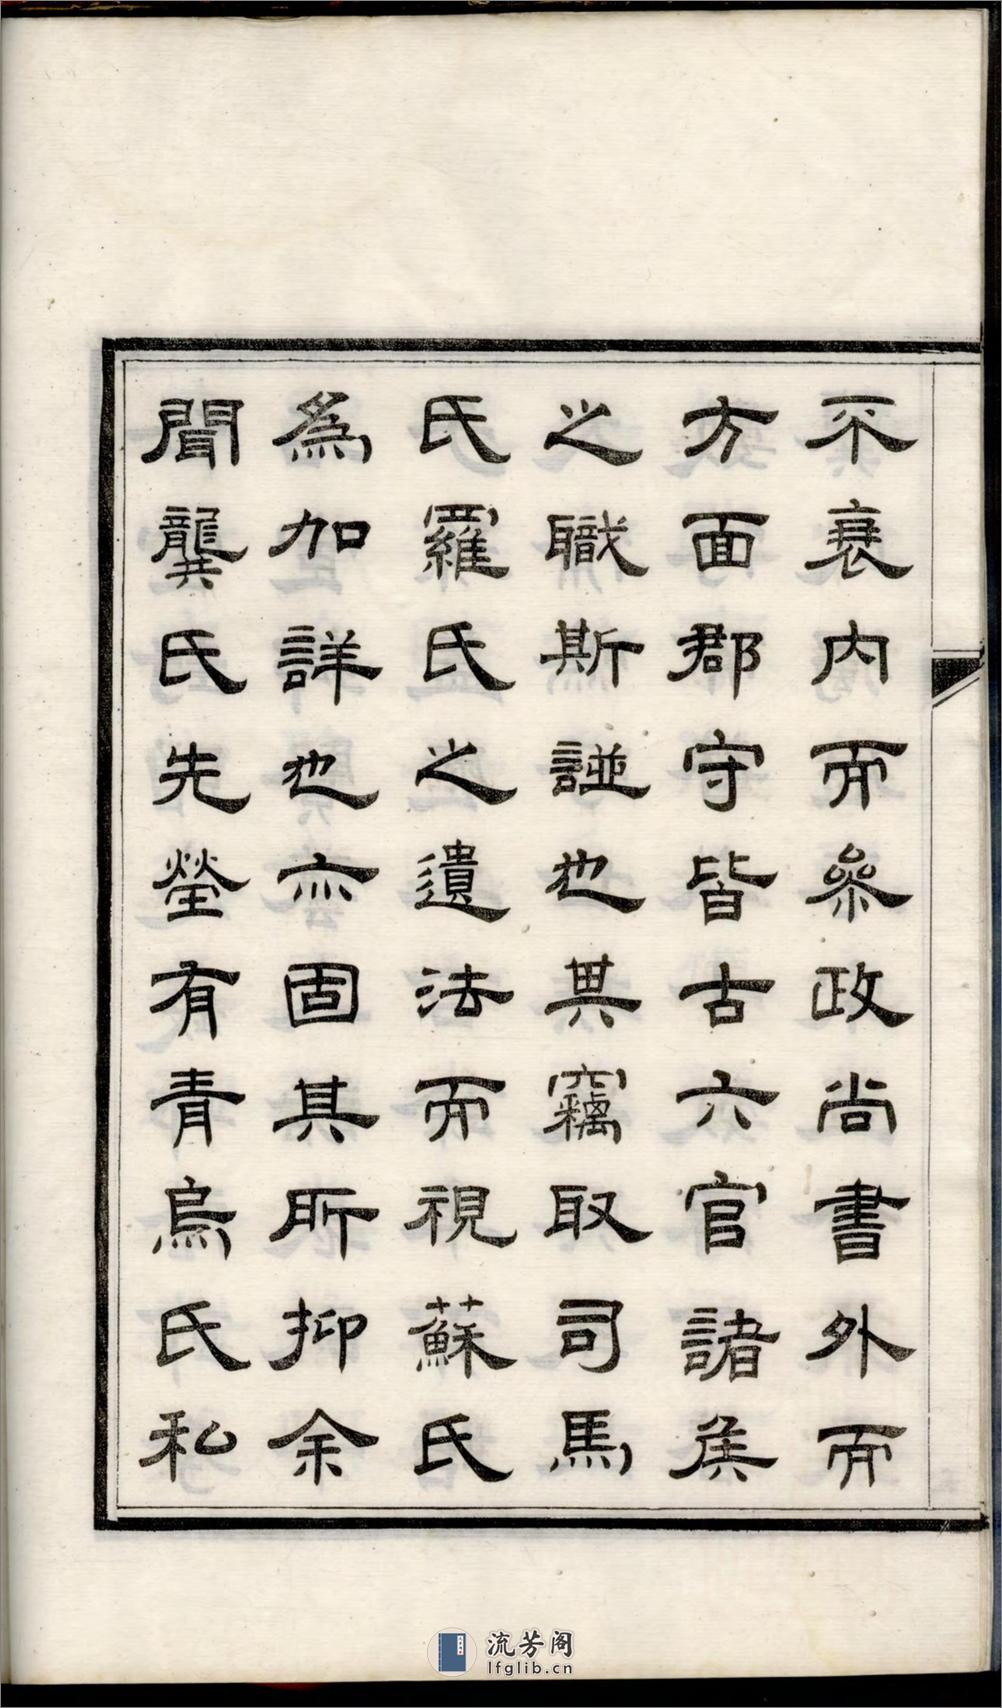 不衰內而參政尚書外而
方面郡守皆古六官諸侯
之職斯諩也其竊取司馬
氏羅氏之遺法而視蘇氏
為加詳也亦固其所抑余
聞龔氏先塋有青烏氏私
流芳阁
lfglib.cn